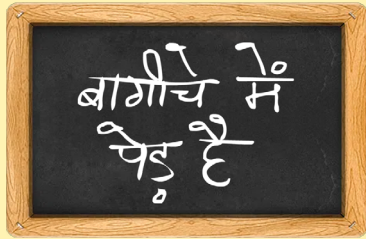 बागीचे में
पेड़ है